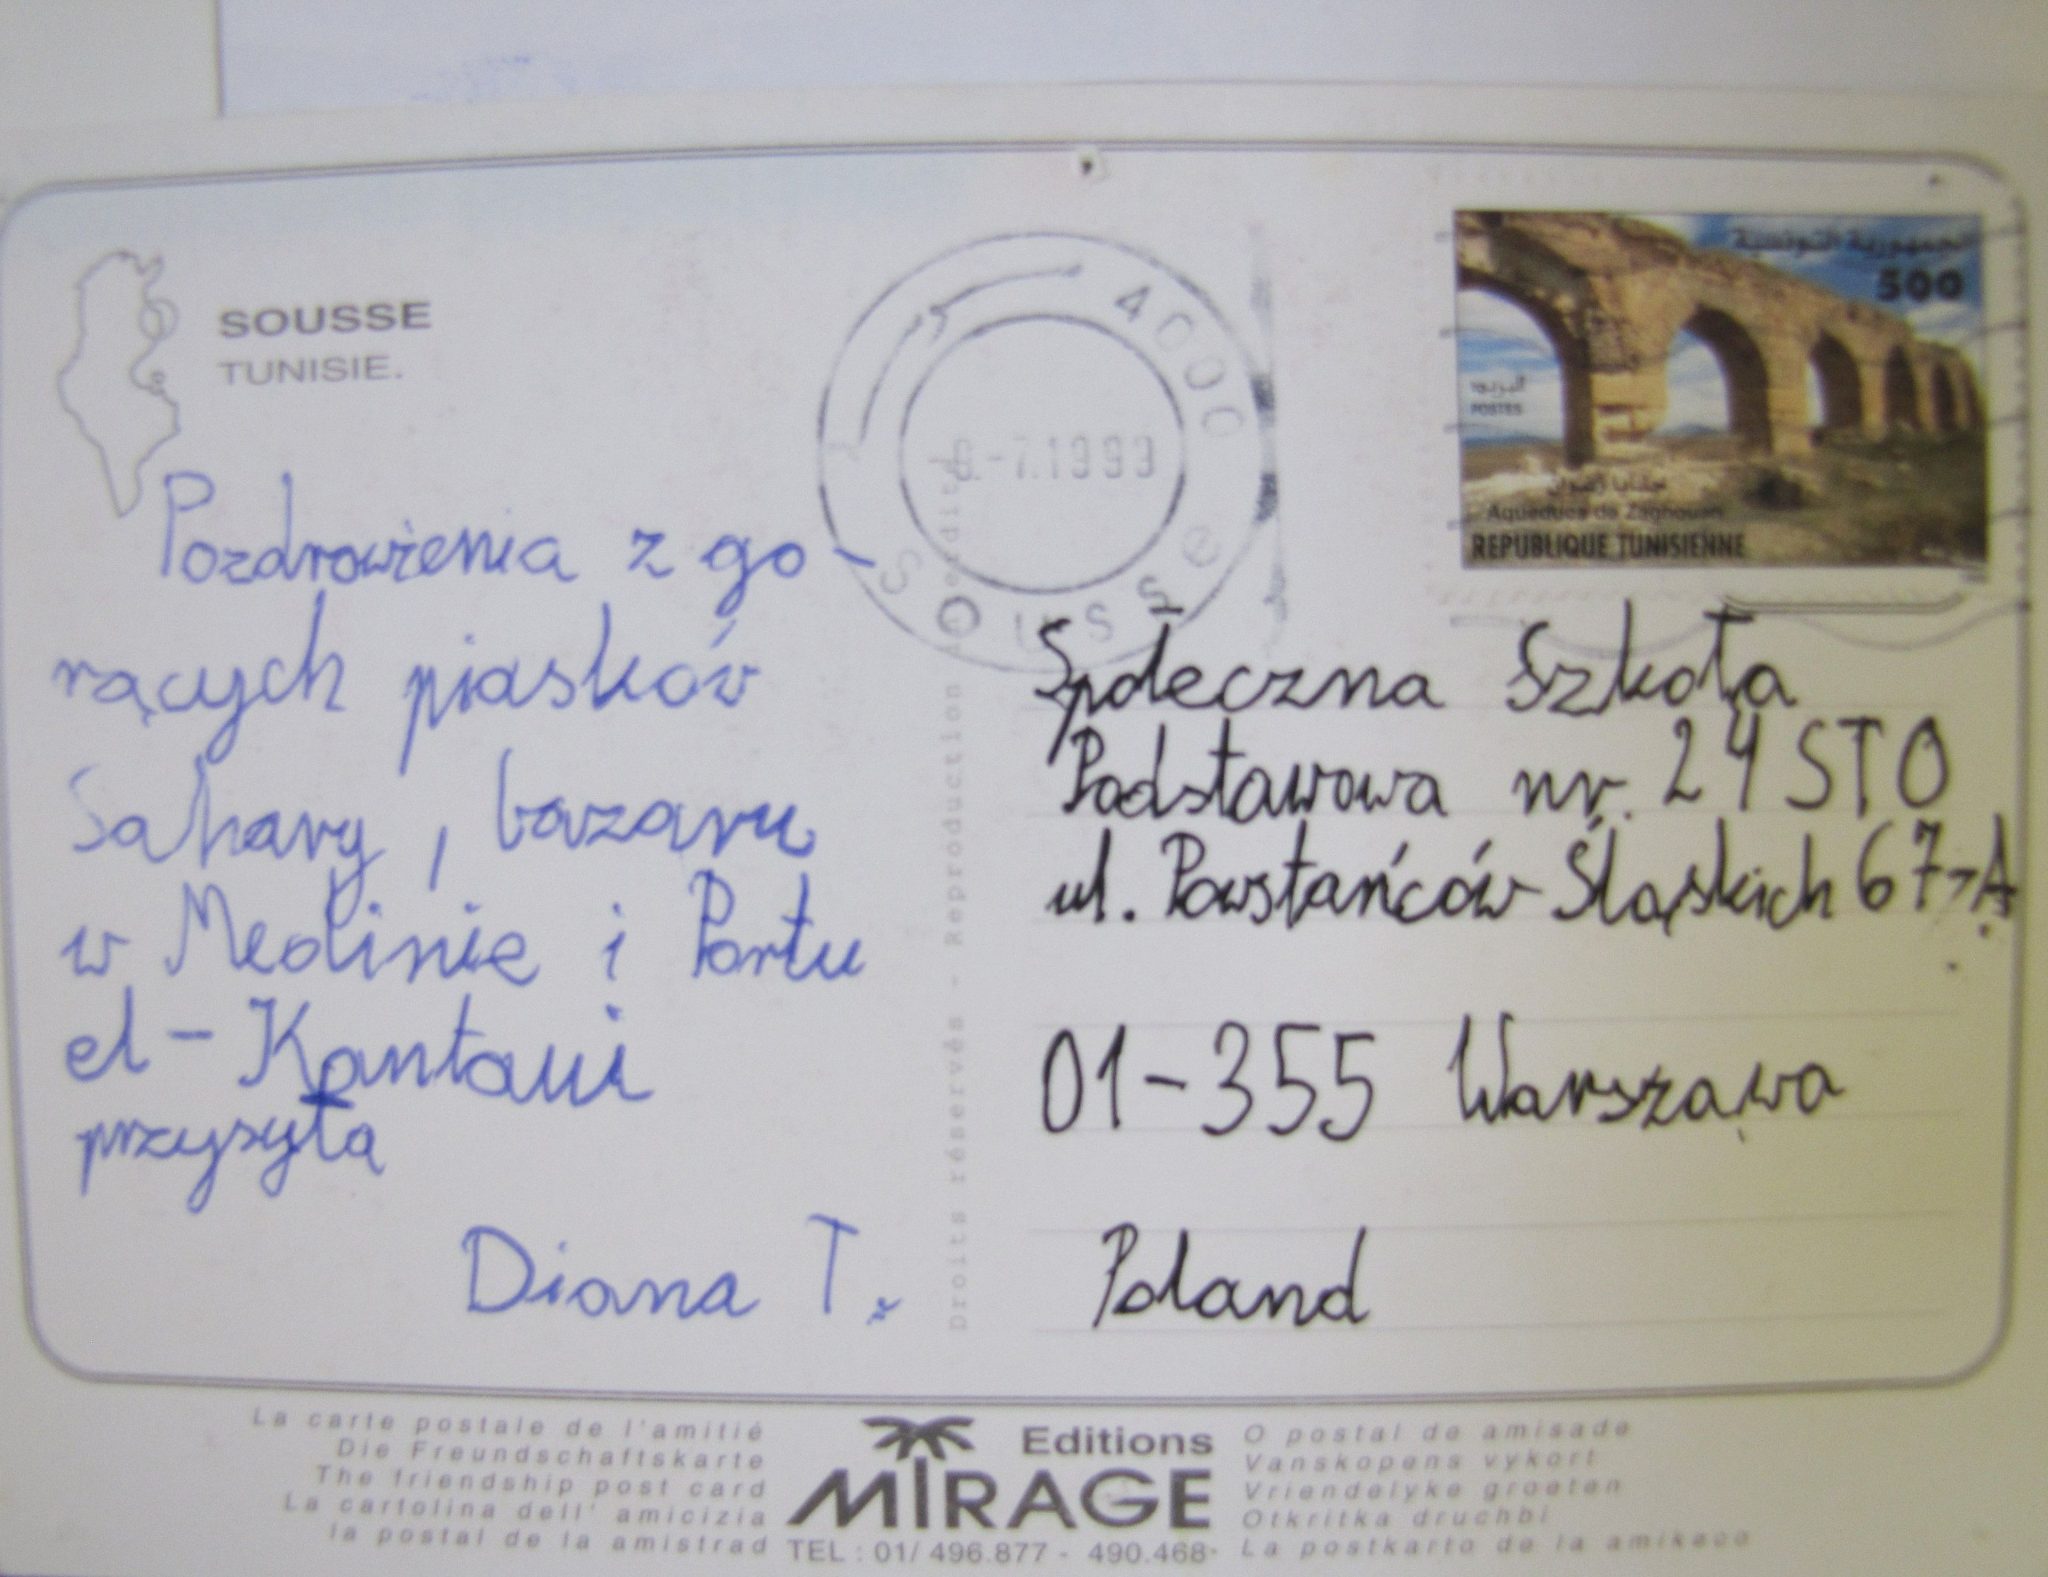 SOUSSE
TUNISIE.
Pozdrowienia z go-
rących piasków
Sahary, bazaru
w Medinie i Portu
el-Kantaui
przysyła
Diana T.
4000
-7.1999
Sousse
الجمهورية التونسية
500
البريد
POSTES
حنايا زغوان
Aqueducs de Zaghouan
REPUBLIQUE TUNISIENNE
Droits réservés - Reproduction interdite
Społeczna Szkoła
Podstawowa nr. 24 STO
ul. Powstańców Śląskich 67-A
01-355 Warszawa
Poland
La carte postale de l'amitié
Die Freundschaftskarte
The friendship post card
La cartolina dell' amicizia
la postal de la amistrad
Editions
MIRAGE
TEL : 01/ 496.877 - 490.468
O postal de amisade
Vanskopens vykort
Vriendelyke groeten
Otkritka druchbi
La postkarto de la amikeco